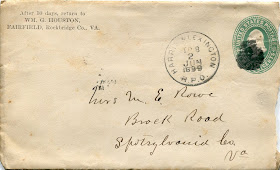 After 10 days, return to
WM. G. HOUSTON,
FAIRFIELD, Rockbridge Co., VA.
HARRIS & LEXINGTON
2
JUN
1899
R.P.O.
Mrs M. E. Rowe
Brock Road
Spotsylvania Co.
Va